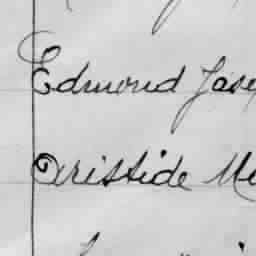 Edmond Jose
Aristide Me